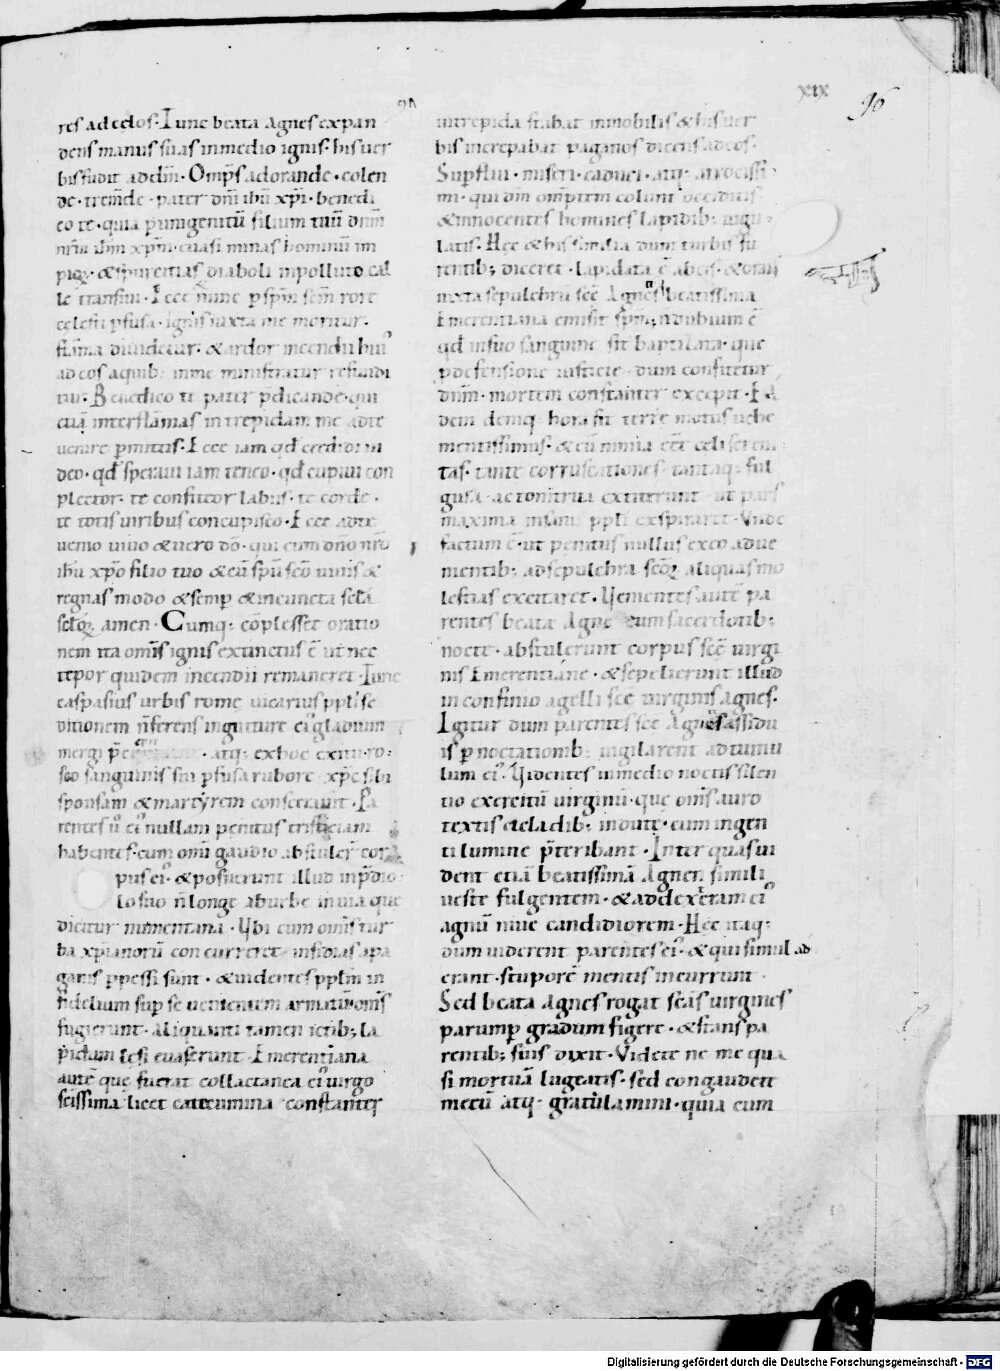 xix
96
res ad e dos. Tunc beata Agnes expan
dens manus suas inmedio ignis. his uer
bis fudit ad dm̄. Omp̄s adorande. colen
de. trem̄de. pater dnī ihū xp̄i. benedi
co te. quia p unigenitū filium tuū dnm̄
nr̄m ihm̄ xpm̄. euasi minas hominū im
pioꝝ. & spurcitias diaboli inpolluto cal
le transiui. Ecce nunc p sp̄m sc̄m rore
celesti pfusa. ignis iuxta me moritur.
flāma diuidetur. & ardor incendii hui᾽
ad eos a quib; in me ministratur refundi
tur. Benedico te pater p̄dicande. qui
etiā inter flāmas intrepidam me ad te
uenire pmittis. Ecce iam qd̄ credidi ui
deo. qd̄ speraui iam teneo. qd̄ cupiui con
plector. te confiteor labiis. te corde.
te totis uiribus concupisco. Ecce ad te
uenio uiuo & uero dō. qui cum dn̄o nr̄o
ihū xpō filio tuo & cū sp̄u sc̄o uiuis &
regnas modo & semp & in cuncta scl̄a
scl̄oꝝ amen. Cumq; cōplesset oratio
nem ita om̄is ignis extinctus ē ut nec
tepor quidem incendii remaneret. Tunc
caspasius urbis rome uicarius pp̄li se
ditionem n̄ ferens in guture ei᾽ gladium
mergi p̄ce . atq; ex hoc exitu ro
seo sanguinis sui pfusa rubore xp̄c sibi
sponsam & martyrem consecrauit. Pa
rentes u̅ ei᾽ nullam penitus tristiciam
habentes. cum omi gaudio abstuler̄ cor
pus ei᾽. & posuerunt illud in p̄dio
lo suo n̄ longe ab urbe in uia que
dicitur numentana. Ubi cum om̄is tur
ba xp̄ianorū concurreret. insidias a pa
ganis ppessi sunt. & uidentes pp̄lm in
fidelium sup se uenientem armatū om̄s
fugierunt. aliquanti tamen ictib; la
pidum lesi euaserunt. Emerentiana
autē que fuerat collactanea ei᾽ uirgo
sc̄issima licet catecumina constanter
intrepida stabat inmobilis & his uer
bis increpabat paganos dicens ad eos.
Supflui. miseri. caduci. atq; atrocissi
mi. qui dm̄ omp̄tem colunt occiditis
& innocentes homines lapidib; iugu
latis. Hec & his similia dum turbis fu
rentib; diceret. lapidata ē ab eis. & orans
iuxta sepulchrū sc̄e Agnes beatissima
Emerentiana emisit sp̄m; n dubium ē
qd̄ in suo sanguine sit baptizata. que
p defensione iusticie dum confitetur
dnm̄. mortem constanter excepit. Ea
dem demq; hora fit terre motus uehe
mentissimus. & cū nimia eēt celi sereni
tas. tante corruscationes. tantaq; ful
gura. ac tonitrua extiterunt. ut pars
maxima insani pp̄li exspiraret. Unde
factum ē. ut penitus nullus ex eo adue
nientib; ad sepulchra sc̄oꝝ aliquas mo
lestias excitaret. Uenientes autē pa
rentes beata Agne cum sacerdotib;
nocte. abstulerunt corpus sc̄e uirgi
nis Emerentiane. & sepelierunt illud
in confinio agelli sc̄e uirginis agnes.
Igitur dum parentes sc̄e Agnes assidu
is pnoctationib; uigilarent ad tumu
lum ei᾽. Uidentes in medio noctis silen
tio exercitū uirginū. que om̄s auro
textis cicladib; indute. cum ingen
ti lumine p̄teribant. Inter quas ui
dent etiā beatissimā Agnen simili
ueste fulgentem. & ad dexteram ei᾽
agnū niue candidiorem. Hec itaq;
dum uiderent parentes ei᾽. & qui simul ad
erant. stuporē mentis incurrunt.
Sed beata Agnes rogat sc̄as uirgines
parump gradum figere. & stans pa
rentib; suis dixit. Videte ne me qua
si mortuā lugeatis. sed congaudete
mecū atq; gratulamini. quia cum